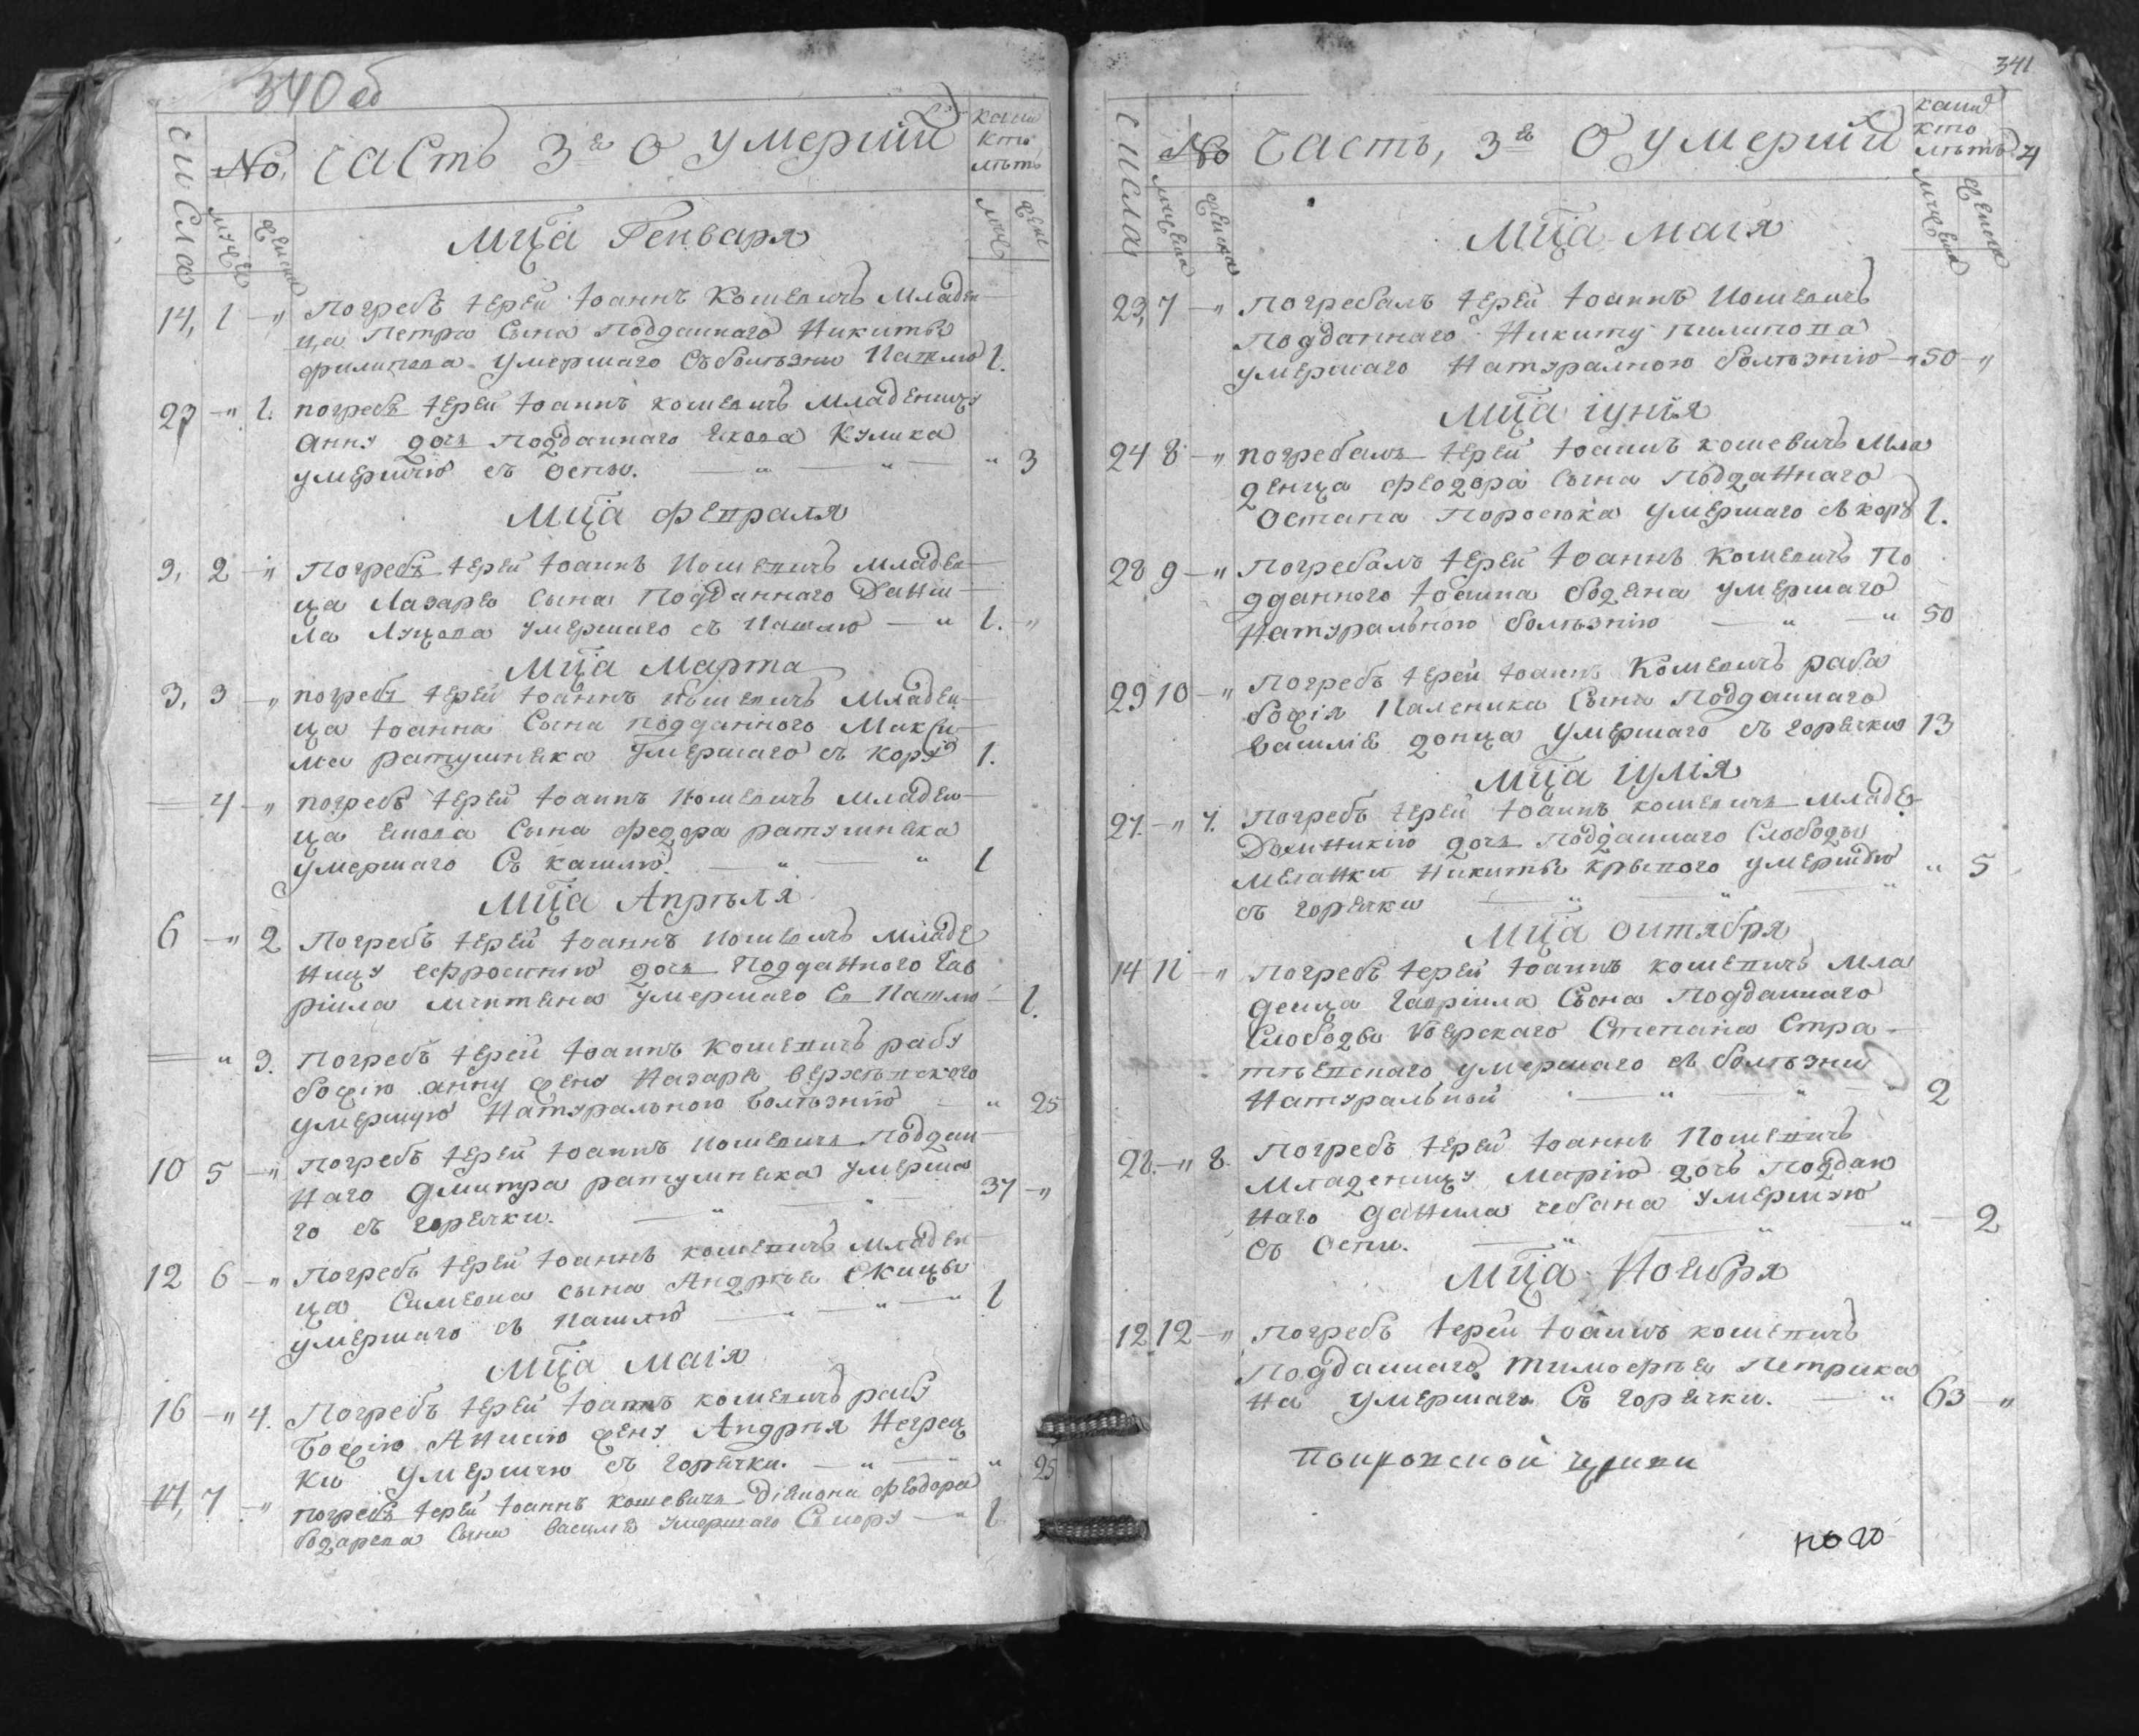 340 об
числа
№
Часть 3я О умерших
коими
кто
летъ
муже
женска
муже
жене
Мца Генваря
14, 1 -„ Погребъ іерей Іоаннъ Кошевичъ Младен-
ца Петра Сына Подданнаго Никиты
Филипова умершаго съ болѣзни Кашлю 1.
23 -„ 1. погребъ іерей Іоаннъ Кошевичъ младеницу
Анну дочь Подданнаго Якова Кулика
умершую съ оспы. 3
Мца февраля
9, 2 -„ Погребъ іерей Іоаннъ Кошевичъ младен-
ца Лазаря Сына Подданнаго Дани-
ла Луцова умершаго съ Кашлю -„ 1. -„
Мца Марта
3, 3 -„ погребъ іерей Іоаннъ Кошевичъ Младен-
ца Іоанна Сына подданного Макси-
ма ратушняка умершаго съ кору 1.
= 4 -„ погребъ іерей Іоаннъ Кошевичъ младен-
ца Сына федора ратушняка
умершаго Съ кашлю. 1
Мца Апрѣля
6 -„ 2 Погребъ іерей Іоаннъ Кошевичъ младе
ницу Ефросинію дочь Подданного Гав
ріила умершаго Съ Кашлю 1.
= „ 3. Погребъ іерей Іоаннъ Кошевичъ рабу
божію анну жену Назара
умершую Натуральною болѣзнію „ 25
10 5 -„ Погребъ іерей Іоаннъ Кошевичъ Поддан
наго Дмитра ратушняка умерша
го съ горячки. 37 -„
12 6 -„ Погребъ іерей Іоаннъ кошевичъ младен
ца Симеона сына Андрѣя Скицы
умершаго съ Кашлю 1
Мца Маія
16 -„ 4. Погребъ іерей Іоаннъ кошевичъ рабу
божію Анисію жену Андрѣя
ки умершую съ горячки. -„ 25
17, 7 -„ погребъ іерей Іоаннъ кошевичъ федора
Сына Василія умершаго Съ кору -„ 1
341
числа
№
Часть, 3я О умерших
коих
кто
летъ
мужеска
женска
мужеска
женска
Мца маія
29, 7 -„ Погребалъ іерей Іоаннъ Кошевичъ
Подданнаго Никиту пилипова
умершаго Натуралною болѣзнію -„ 50 -„
Мца іунія
24 8 -„ погребалъ іерей Іоаннъ кошевичъ Мла
денца феодора Сына Подданнаго
Остапа Поросюка умершаго съ кору 1.
28 9 -„ Погребалъ іерей Іоаннъ Кошевичъ По
дданного Іоанна умершаго
Натуральною болѣзнію -„ -„ 50
29 10 -„ Погребъ іерей Іоаннъ Кошевичъ раба
божія Каленика Сына Подданнаго
василія донца умершаго съ горячки 13
Мца іулія
27. -„ 7. Погребъ іерей Іоаннъ кошевичъ младе-
Доминикію дочь Подданнаго Слободы
Никиты умершую „ 5
съ горячки
Мца октября
14 11 -„ Погребъ іерей Іоаннъ кошевичъ Мла
денца Гавріила Сына Подданнаго
Слободы Боярского Степана Стра-
умершаго съ болѣзни
Натуральной 2
28. -„ 8. Погребъ іерей Іоаннъ Кошевичъ
Младеницу Марію дочь Поддан
наго данила чебана умершую
съ Оспи. 2
Мца Ноября
12 12 -„ Погребъ іерей Іоаннъ кошевичъ
Подданнаго Тимофѣя Петрика
на умершаго Съ горячки. -„ 63 -„
Покровской церкви